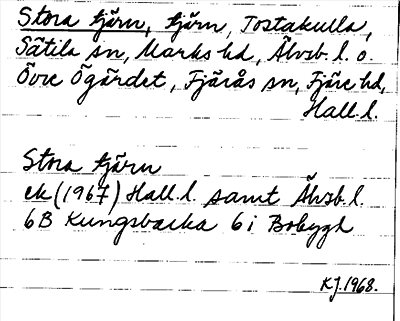 Stora tjärn, tjärn, Tostakulla,
Sätila sn, Marks hd, Älvsb. l. o.
Övre Ögärdet, Fjärås sn, Fjäre hd,
Hall. l.
Stora tjärn
ek (1967) Hall. l. samt Älvsb. l.
6B Kungsbacka 6 i Bobygd
KJ. 1968.